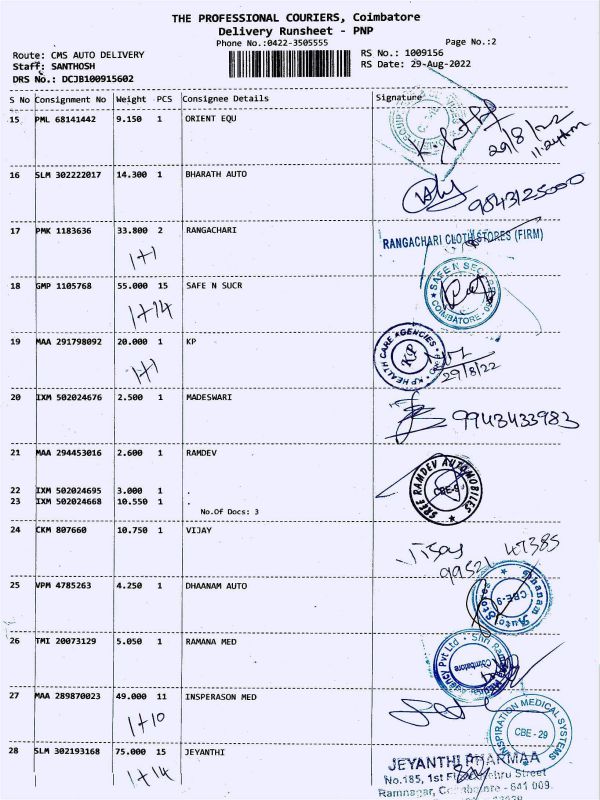 THE PROFESSIONAL COURIERS, Coimbatore
Delivery Runsheet - PNP
Phone No.:0422-3505555
Page No.:2
Route: CMS AUTO DELIVERY
RS No.: 1009156
Staff: SANTHOSH
RS Date: 29-Aug-2022
DRS No.: DCJB100915602
S No Consignment No Weight PCS Consignee Details Signature
15 PML 68141442 9.150 1 ORIENT EQU
29/8/22
16 SLM 302222017 14.300 1 BHARATH AUTO
9843125000
17 PMK 1183636 33.800 2 RANGACHARI
1+1
RANGACHARI CLOTH STORES (FIRM)
18 GMP 1105768 55.000 15 SAFE N SUCR
1+14
SAFE N
COIMBATORE
19 MAA 291798092 20.000 1 KP
1+1
KP HEALTH CARE AGENCIES
KP
29/8/22
20 IXM 502024676 2.500 1 MADESWARI
9943433983
21 MAA 294453016 2.600 1 RAMDEV
SREE RAMDEV AUTOMOBILES
22 IXM 502024695 3.000 1 .
23 IXM 502024668 10.550 1 .
No.Of Docs: 3
24 CKM 807660 10.750 1 VIJAY
Vijay
99521 47385
25 VPM 4785263 4.250 1 DHAANAM AUTO
Dhanam Auto Stores
CBE-9
26 TMI 20073129 5.050 1 RAMANA MED
Coimbatore
27 MAA 289870023 49.000 11 INSPERASON MED
1+10
INSPIRATION MEDICAL SYSTEMS
CBE - 29
28 SLM 302193168 75.000 15 JEYANTHI
1+14
JEYANTHI PHARMAA
No.185, 1st Nehru Street
Ramnagar, Coimbatore - 641 009.